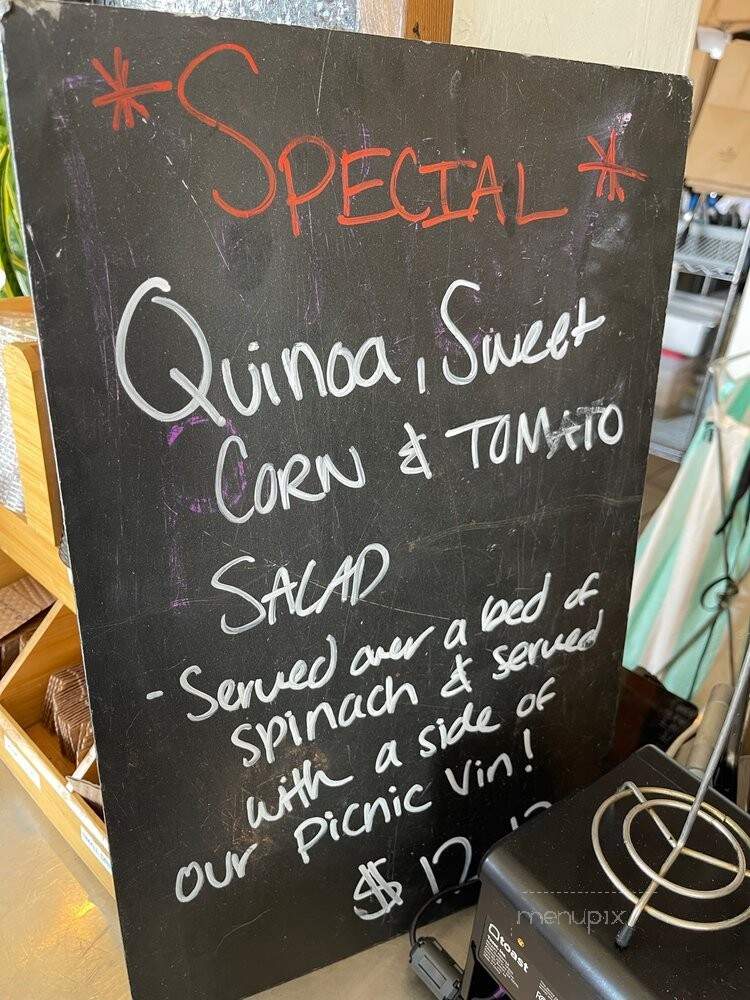 *SPECIAL*
Quinoa, Sweet
CORN & TOMATO
SALAD
- Served over a bed of
spinach & served
with a side of
our Picnic Vin!
$12
menupix
toast